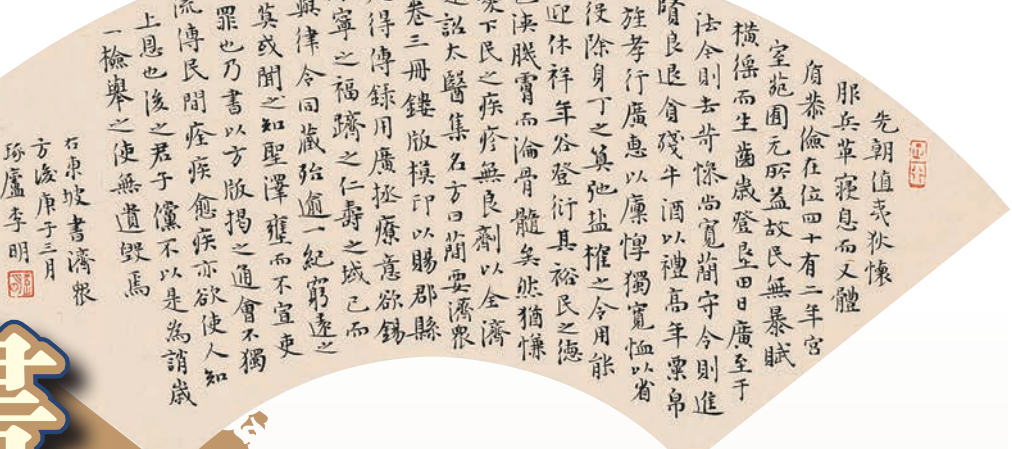 先朝值戎狄懷
服兵革寢息而又體
恭儉在位四十有二年宮
室苑囿无所益故民無暴賦
橫徭而生齒歲登墾田日廣至于
法令則去苛慘尚寬簡守令則進
良退貪殘牛酒以禮高年粟帛
旌孝行廣惠以廩惸獨寬恤以省
役除身丁之筭弛盐榷之令用能
迎休祥年谷登衍其裕民之德
浹肌膚而淪骨髓矣然猶慊
下民之疾疹無良劑以全濟
詔太醫集名方曰簡要濟眾
卷三冊鏤版模印以賜郡縣
得傳錄用廣拯療意欲錫
寧之福躋之仁壽之域已而
律令同藏殆逾一紀窮遠之
莫或聞之知聖澤壅而不宣吏
罪也乃書以方版揭之通會不獨
流傳民間痊疾愈疾亦欲使人知
上恩也後之君子儻不以是為誚歲
一檢舉之使無遺毀焉
右東坡書濟眾
方後庚子三月
琢廬李明